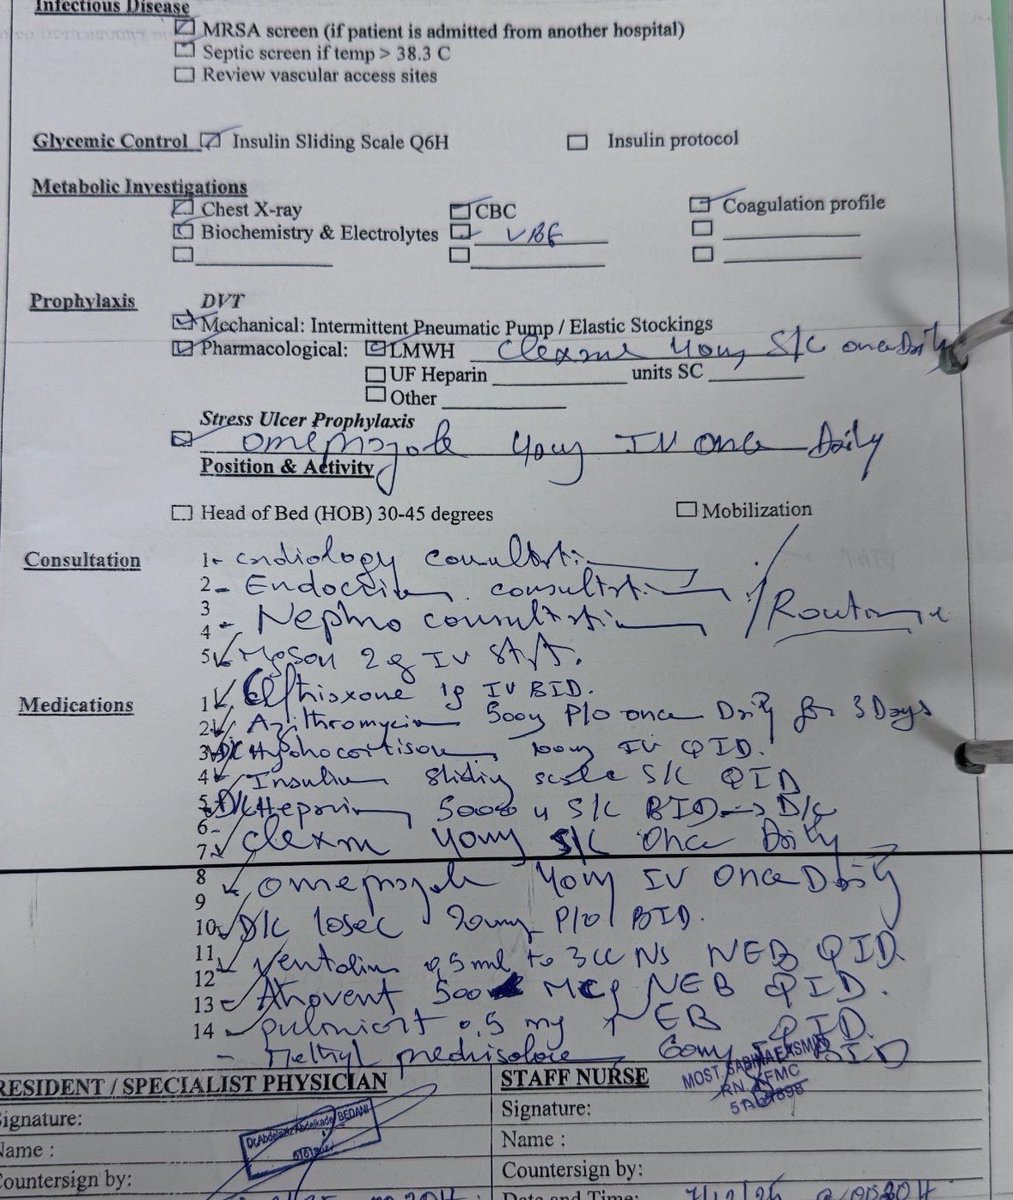 Infectious Disease
MRSA screen (if patient is admitted from another hospital)
Septic screen if temp > 38.3 C
Review vascular access sites
Glycemic Control Insulin Sliding Scale Q6H Insulin protocol
Metabolic Investigations
Chest X-ray CBC Coagulation profile
Biochemistry & Electrolytes VBG
Prophylaxis DVT
Mechanical: Intermittent Pneumatic Pump / Elastic Stockings
Pharmacological: LMWH Clexane 40mg S/C once Daily
UF Heparin units SC
Other
Stress Ulcer Prophylaxis
omeprazole 40mg IV once Daily
Position & Activity
Head of Bed (HOB) 30-45 degrees Mobilization
Consultation 1- cardiology consultation
2- Endocrin consultation
3
4 - Nephro consultation Routine
5 2g IV stat.
Medications 1 Ceftriaxone 1g IV BID.
2 Azithromycin 500mg P/O once Daily for 3 Days
3 D/C Hydrocortisone 100mg IV QID.
4 Insulin sliding scale S/C QID
5 D/C Heparin 5000 u S/C BID → D/C
6-
7 Clexan 40mg S/C Once Daily
8 omeprazole 40mg IV Once Daily
9
10 D/C losec 20mg P/O BID.
11 Ventolin 0,5 ml to 3cc NS NEB QID
12
13 Atrovent 500 Mcg NEB QID.
14 pulmicort 0.5 mg NEB QID.
- Methyl prednisolone 60mg IV BID
RESIDENT / SPECIALIST PHYSICIAN STAFF NURSE
MOST. SABINA EASMIN
Signature: Signature:
Dr. Abdelaziz Abdelkader BEDANI
Name : Name :
Countersign by: Countersign by:
Date and Time: